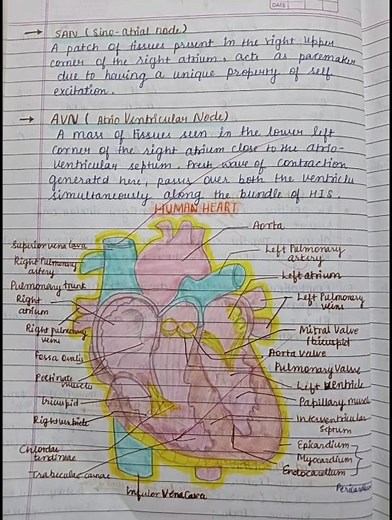 DATE
→ SAN (Sino-atrial node)
A patch of tissues present in the right upper
corner of the right atrium, acts as pacemaker
due to having a unique property of self
excitation.
→ AVN (Atrio Ventricular Node)
A mass of tissues seen in the lower left
corner of the right atrium close to the atrio-
ventricular septum. Fresh wave of contraction
generated here, passes over both the ventricle
simultaneously along the bundle of HIS.
HUMAN HEART
Aorta
Superior vena cava
Left Pulmonary
artery
Right Pulmonary
artery
Left atrium
Pulmonary trunk
Left Pulmonary
veins
Right
atrium
Mitral Valve
Bicuspid
Right pulmonary
veins
Aorta Valve
Fossa Ovalis
Pulmonary Valve
Pectinate
muscle
Left Ventricle
Papillary muscle
Tricuspid
Interventricular
septum
Right
Epicardium
Chlordae
tindinae
Myocardium
Endocardium
Trabeculae carnae
Inferior Vena Cava